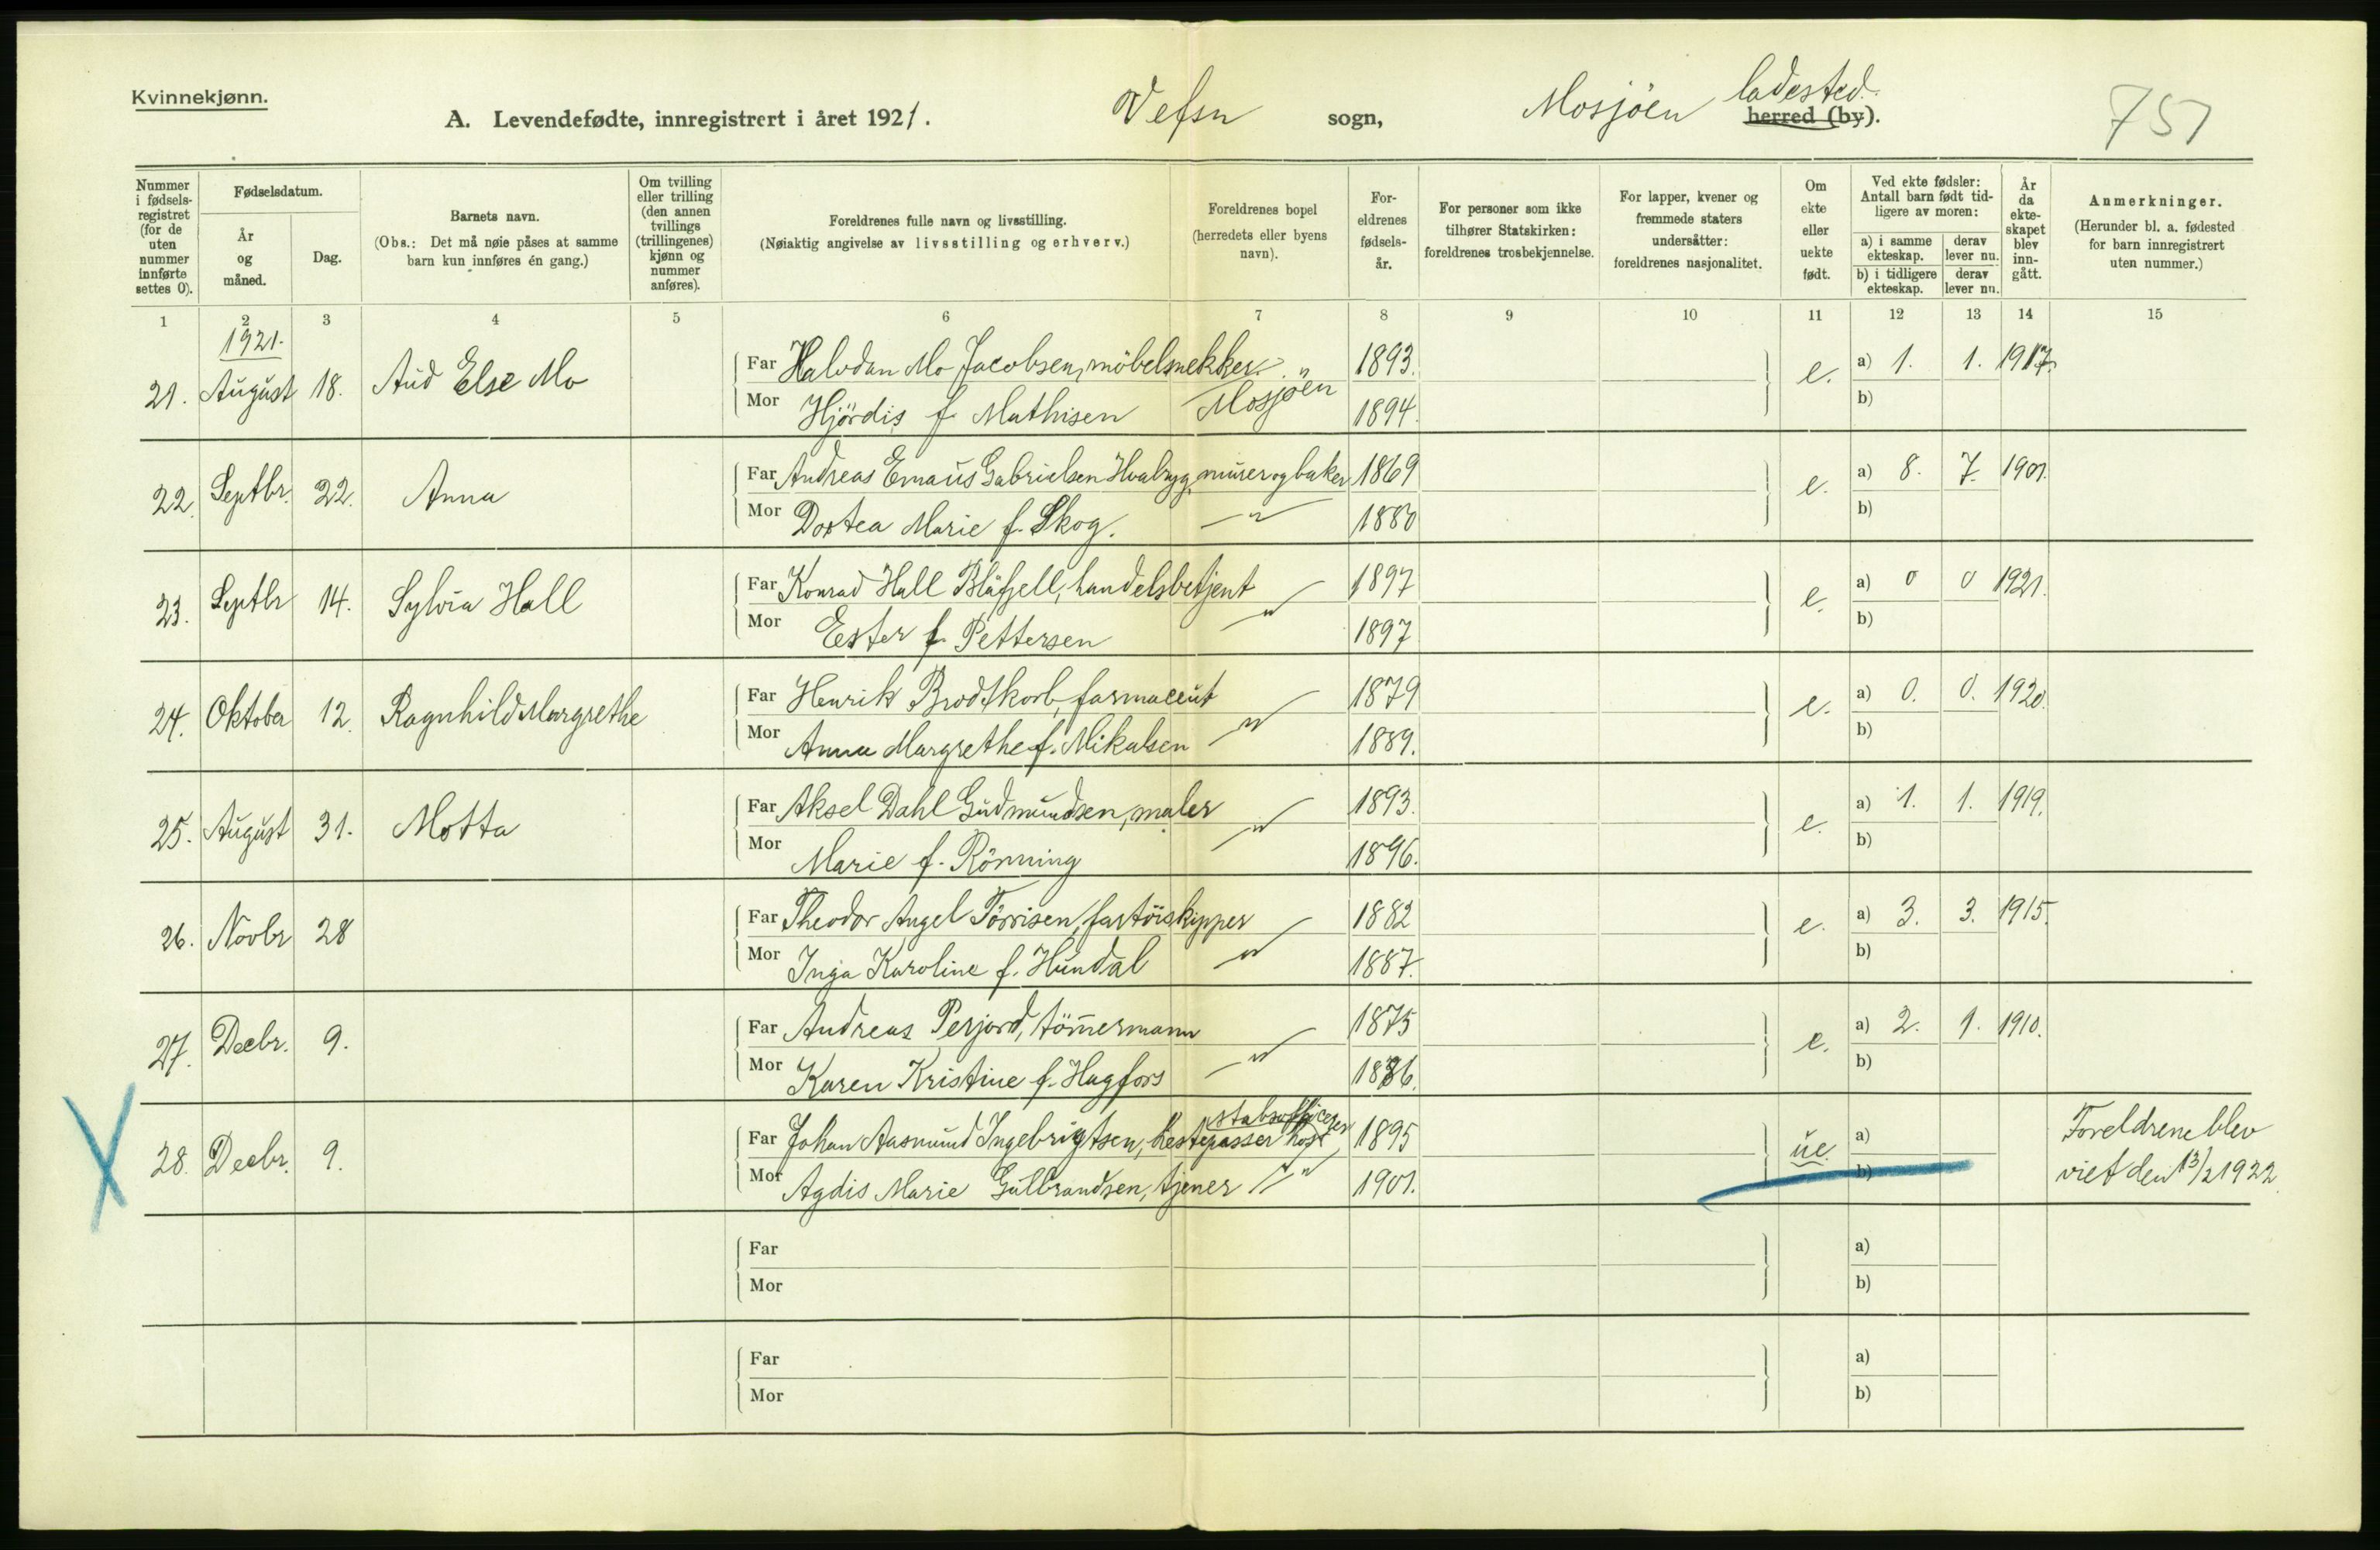 Kvinnekjønn.
A. Levendefødte, innregistrert i året 1921. Vefsn sogn, Mosjöen ladested. herred (by). 751
Nummer i fødselsregistret (for de uten nummer innførte settes 0).
Fødselsdatum.
År og måned.
Dag.
Barnets navn.
(Obs.: Det må nøie påses at samme barn kun innføres én gang.)
Om tvilling eller trilling (den annen tvillings (trillingenes) kjønn og nummer anføres).
Foreldrenes fulle navn og livsstilling.
(Nøiaktig angivelse av livsstilling og erhverv.)
Foreldrenes bopel (herredets eller byens navn).
Foreldrenes fødselsår.
For personer som ikke tilhører Statskirken: foreldrenes trosbekjennelse.
For lapper, kvener og fremmede staters undersåtter: foreldrenes nasjonalitet.
Om ekte eller uekte født.
Ved ekte fødsler: Antall barn født tidligere av moren:
a) i samme ekteskap.
derav lever nu.
b) i tidligere ekteskap.
derav lever nu.
År da ekteskapet blev inngått.
Anmerkninger.
(Herunder bl. a. fødested for barn innregistrert uten nummer.)
1 2 3 4 5 6 7 8 9 10 11 12 13 14 15
1921.
21. August 18. Aud Else Mo Far Halvdan Mo Jacobsen, möbelsnekker. 1893. e. a) 1. 1. 1917.
Mor Hjördis f. Mathisen Mosjöen 1894. b)
22. Septbr. 22. Anna Far Andreas Emaus Gabrielsen Hvalryg, murer og baker 1869 e. a) 8. 7. 1901.
Mor Dortea Marie f. Skog. — " — 1880 b)
23. Septbr 14. Sylvia Hall Far Konrad Hall Blåfjell, handelsbetjent 1897 e. a) 0 0 1921.
Mor Ester f. Pettersen — " — 1897 b)
24. Oktober 12. Ragnhild Margrethe Far Henrik Brodtkorb, farmaceut 1879 e. a) 0. 0. 1920.
Mor Anna Margrethe f. Mikalsen — " — 1889. b)
25. August 31. Motta Far Aksel Dahl Gudmundsen, maler 1893. e. a) 1. 1. 1919.
Mor Marie f. Rönning — " — 1896. b)
26. Novbr 28 Far Theodor Angel Törrisen, fartöiskipper 1882 e. a) 3. 3. 1915.
Mor Inga Karoline f. Hundal — " — 1887. b)
27. Decbr. 9. Far Andreas Perjord, tömermann 1875 e. a) 2. 1. 1910.
Mor Karen Kristine f. Hagfors — " — 1886. b)
28. Decbr. 9. Far Johan Aasmund Ingebrigtsen, hestepasser hos stabsofficer 1895 ue. a) Foreldrene blev
Mor Agdis Marie Gulbrandsen, tjener — " — 1901. b) viet den 13/2 1922.
Far a)
Mor b)
Far a)
Mor b)